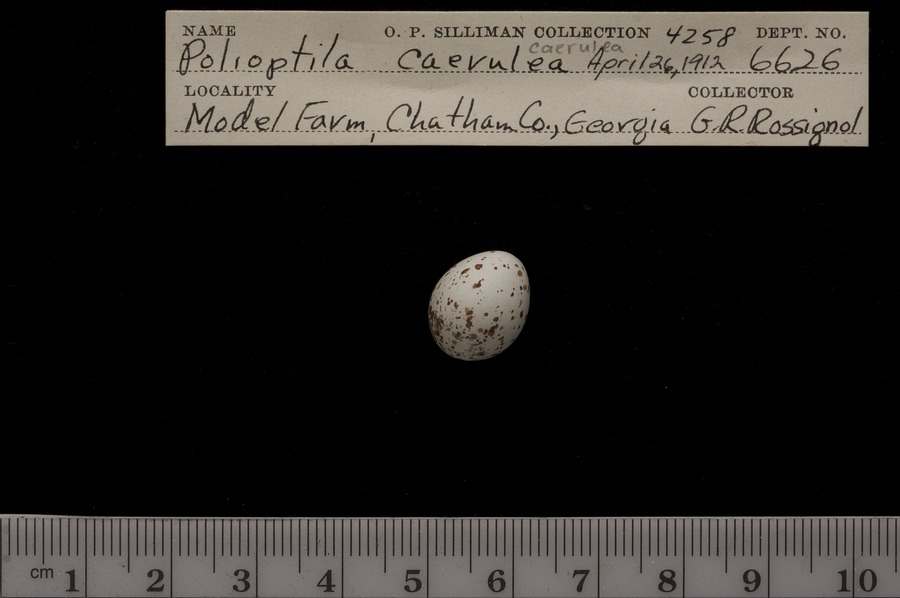 NAME O. P. SILLIMAN COLLECTION 4258 DEPT. NO.
caerulea
Polioptila caerulea April 26, 1912 6626
LOCALITY COLLECTOR
Model Farm, Chatham Co., Georgia G.R. Rossignol
cm 1 2 3 4 5 6 7 8 9 10